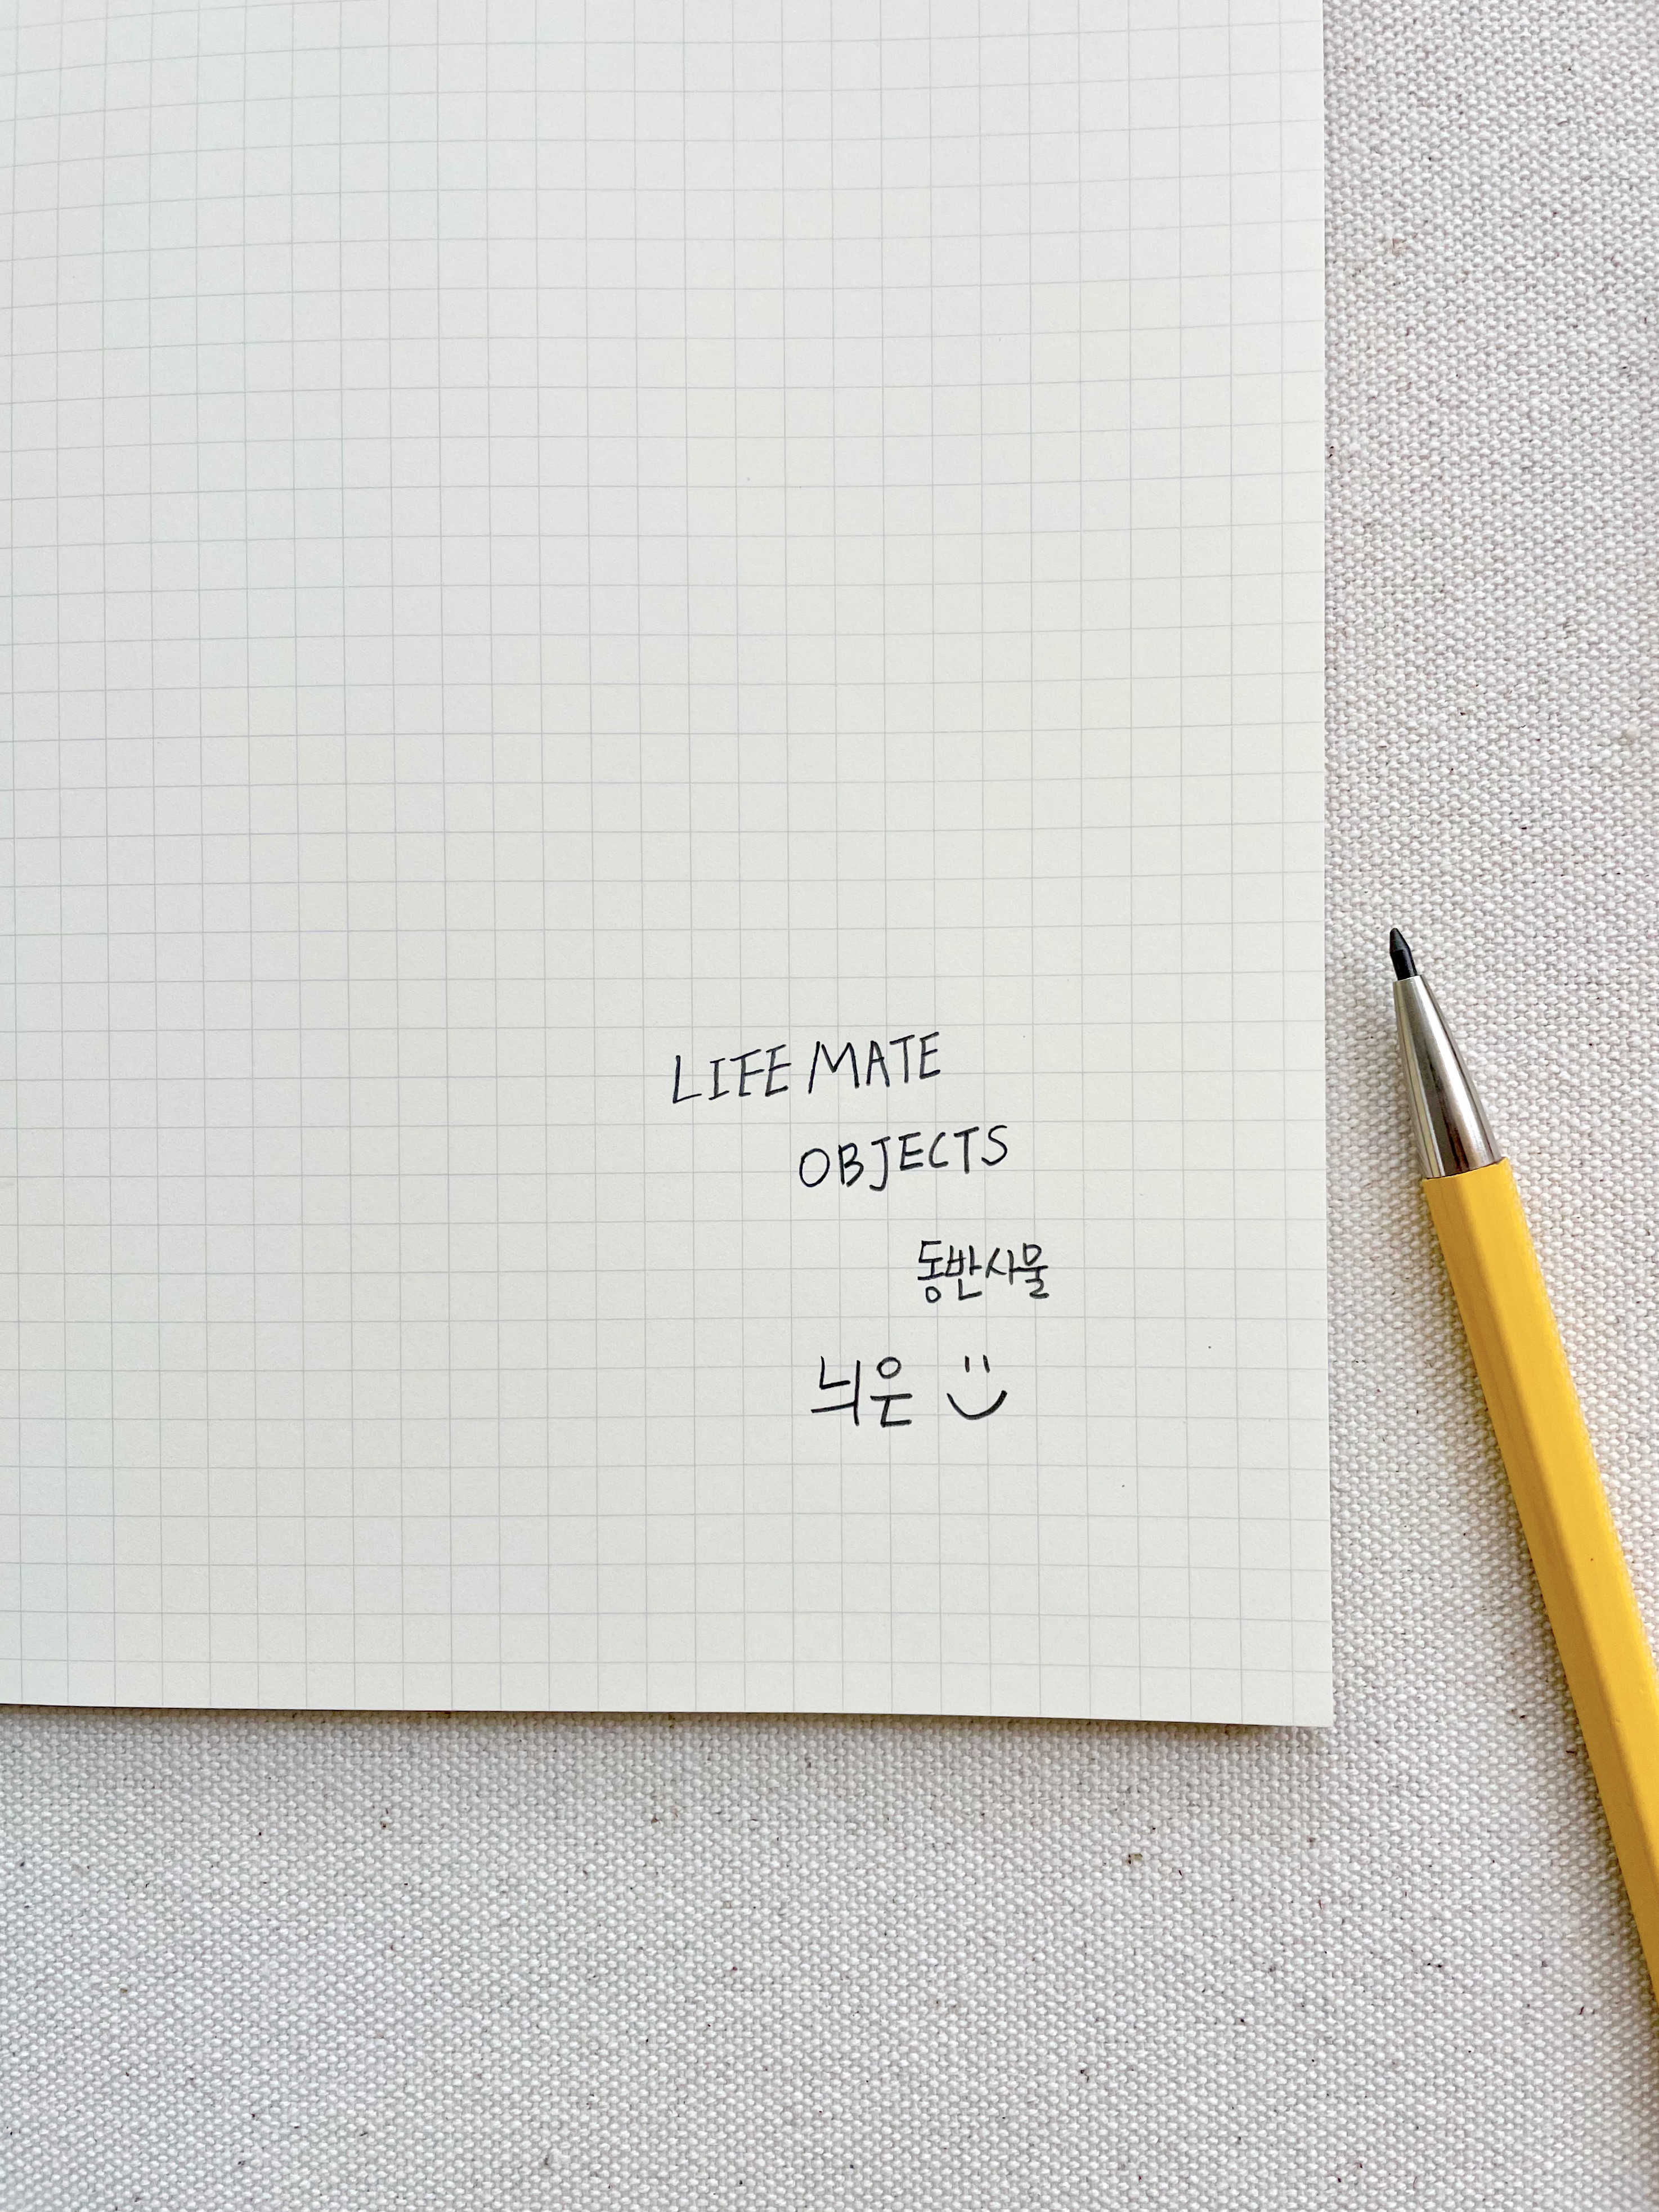 LIFE MATE
OBJECTS
동반사물
늬은 :)